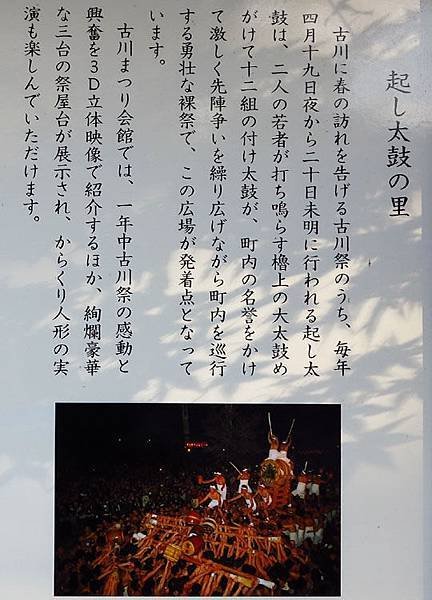 起し太鼓の里
古川に春の訪れを告げる古川祭のうち、毎年
四月十九日夜から二十日未明に行われる起し太
鼓は、二人の若者が打ち鳴らす櫓上の大太鼓め
がけて十二組の付け太鼓が、町内の名誉をかけ
て激しく先陣争いを繰り広げながら町内を巡行
する勇壮な裸祭で、この広場が発着点となって
います。
古川まつり会館では、一年中古川祭の感動と
興奮を3D立体映像で紹介するほか、絢爛豪華
な三台の祭屋台が展示され、からくり人形の実
演も楽しんでいただけます。